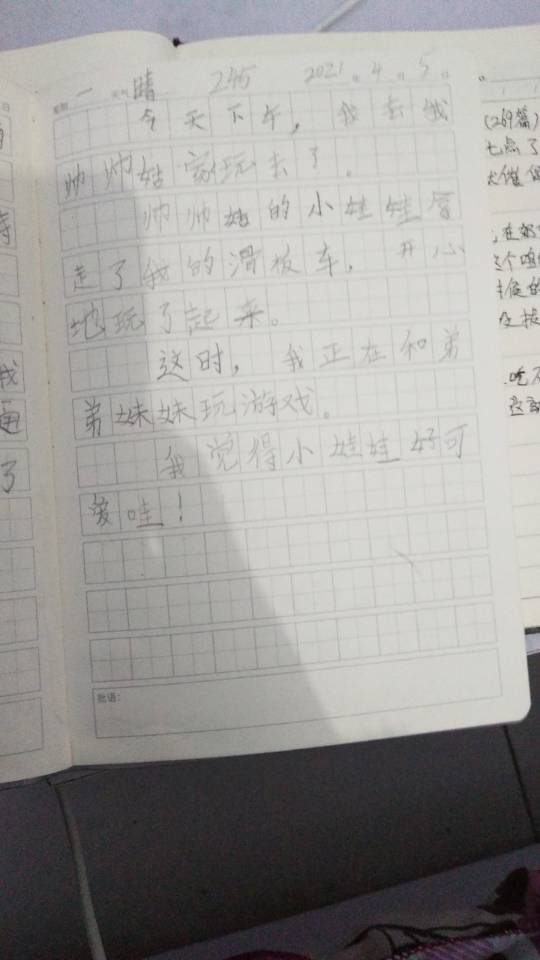 星期 一 天气 晴 245 2021年4月5日
今天下午，我去
帅帅姑家玩去了。
帅帅姑的小娃娃
走了我的滑板车，开心
地玩了起来。
这时，我正在和弟
弟妹妹玩游戏。
我觉得小娃娃好可
爱哇！
批语：
日
我
了
(269篇)
七点了